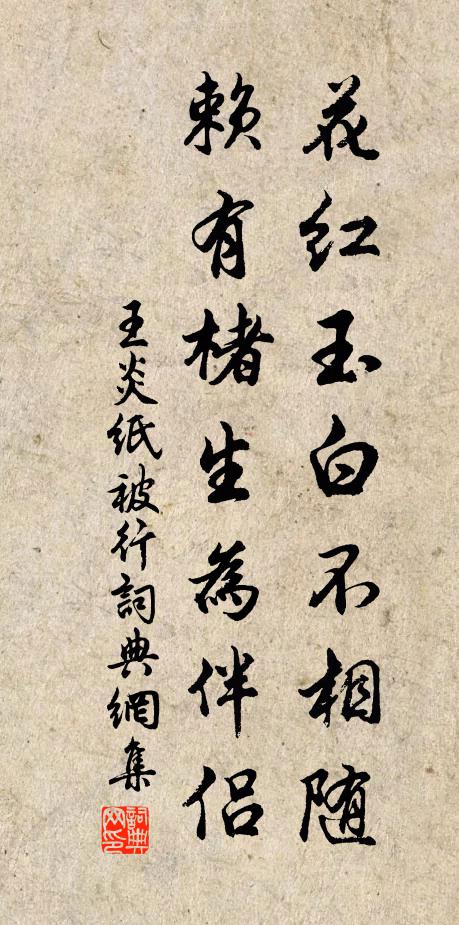 花红玉白不相随
赖有楮生為伴侣
王炎纸被行詞典網集
詞典网印